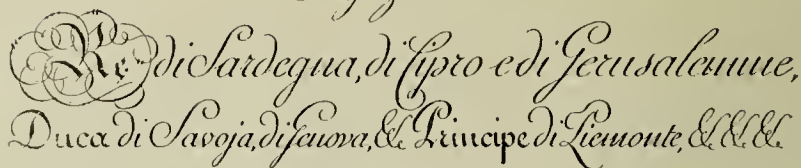 Re di Sardegna, di Cipro e di Gerusalemme,
Duca di Savoja, di Genova, &c. Principe di Piemonte, &c. &c. &c.